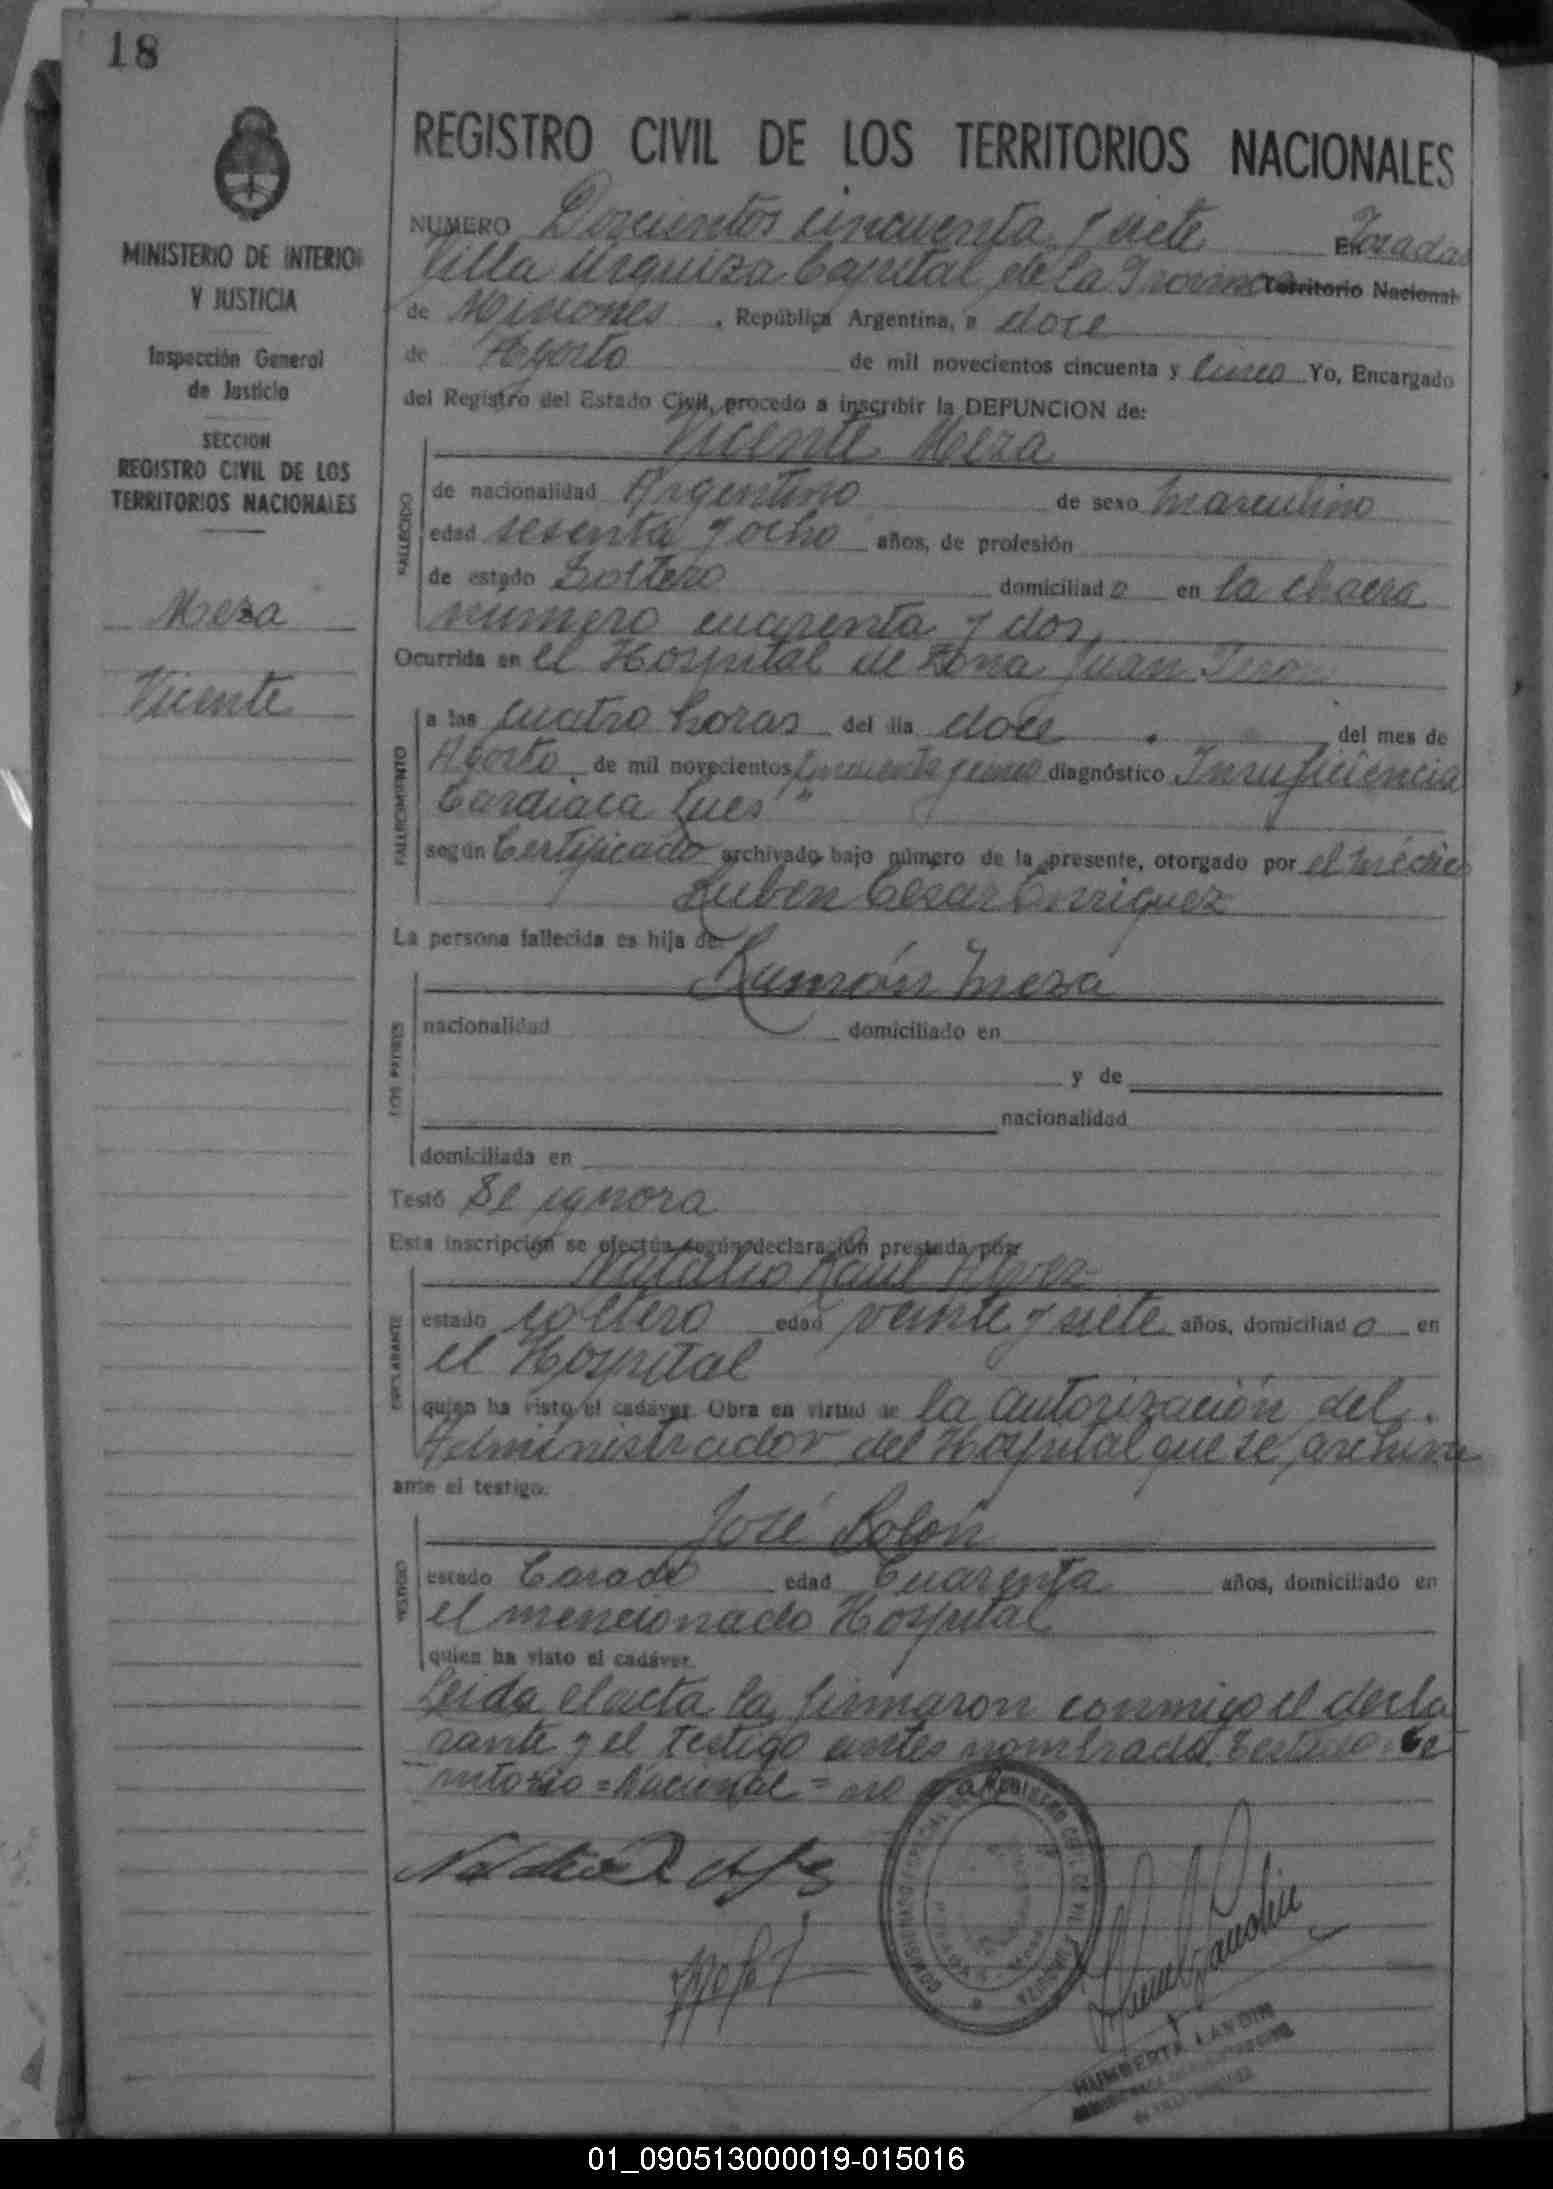 18
REGISTRO CIVIL DE LOS TERRITORIOS NACIONALES
MINISTERIO DE INTERIOR
Y JUSTICIA
Inspección General
de Justicia
SECCION
REGISTRO CIVIL DE LOS
TERRITORIOS NACIONALES
Meza
Vicente
NUMERO Doscientos cincuenta y siete En Posadas
Villa Urquiza Capital de la Provincia Territorio Nacional
de Misiones, República Argentina, a doce
de Agosto de mil novecientos cincuenta y cinco Yo, Encargado
del Registro del Estado Civil, procedo a inscribir la DEFUNCION de:
Vicente Meza
FALLECIDO
de nacionalidad Argentino de sexo masculino
edad sesenta y ocho años, de profesión
de estado Soltero domiciliado en la chacra
número cuarenta y dos,
Ocurrida en el Hospital de Zona Juan Perón
FALLECIMIENTO
a las cuatro horas del día doce del mes de
Agosto de mil novecientos cincuenta y cinco diagnóstico Insuficiencia
Cardiaca Lues"
según Certificado archivado bajo número de la presente, otorgado por el médico
Ruben Cesar Enriquez
La persona fallecida es hija de:
Ramón Meza
LOS PADRES
nacionalidad domiciliado en
y de
nacionalidad
domiciliada en
Testó Se ignora
Esta inscripción se efectúa según declaración prestada por:
Natalio Raul Alvez
DECLARANTE
estado soltero edad veinte y siete años, domiciliado en
el Hospital
quien ha visto el cadáver. Obra en virtud de la autorización del
Administrador del Hospital que se archiva
ante el testigo.
José Rolón
TESTIGO
estado Casado edad Cuarenta años, domiciliado en
el mencionado Hospital
quien ha visto el cadáver.
Leida el acta la firmaron conmigo el decla
rante y el testigo antes nombrado Testado: Te
rritorio = Nacional = no vale
HUMBERTA LANDIN
01_090513000019-015016